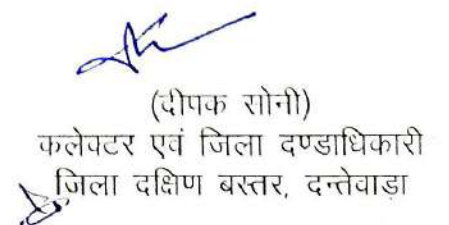 (दीपक सोनी)
कलेक्टर एवं जिला दण्डाधिकारी
जिला दक्षिण बस्तर, दन्तेवाड़ा